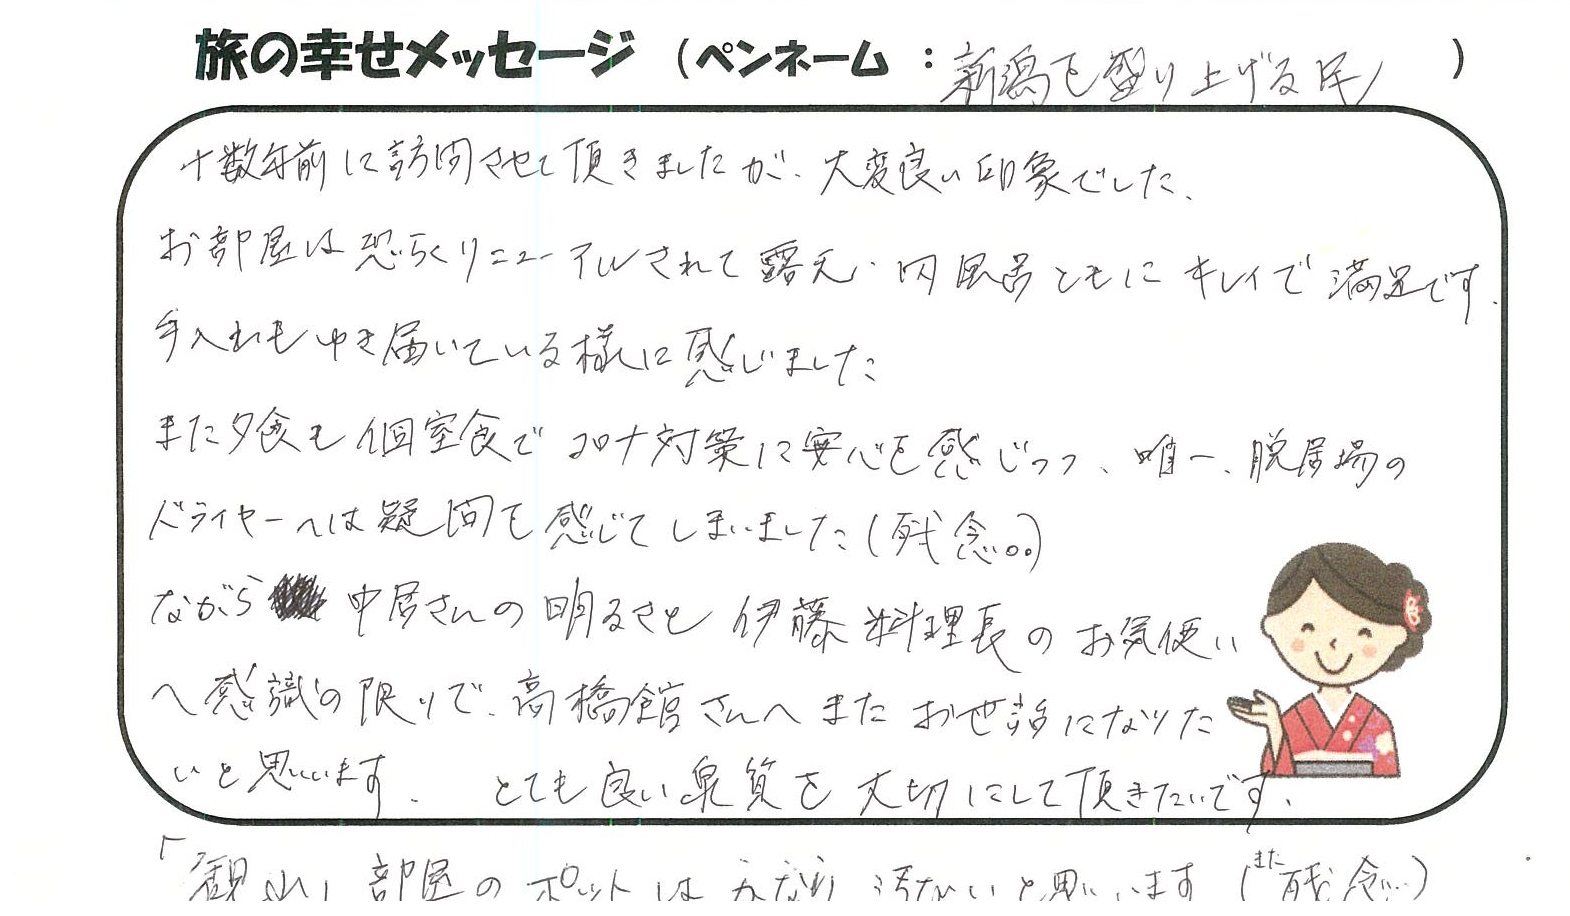 旅の幸せメッセージ (ペンネーム : 新潟を盛り上げる民 )
十数年前に訪問させて頂きましたが、大変良い印象でした、
お部屋は恐らくリニューアルされて露天・内風呂ともにキレイで満足です、
手入れもゆき届いている様に感じました
また夕食も個室食でコロナ対策に安心を感じつつ、唯一、脱居場の
ドライヤーへは疑問を感じてしまいました(残念。。)
ながら 中居さんの明るさと伊藤料理長のお気使い
へ感識の限りで、高橋館さんへまたお世話になりた
いと思います、 とても良い泉質を大切にして頂きたいです、
「観山」部屋のポットはかなり汚ないと思います(また残念…)